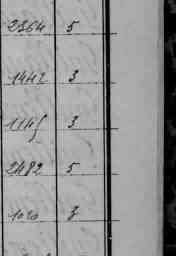 2364 5
1442 3
1145 3
2482 5
1020 3